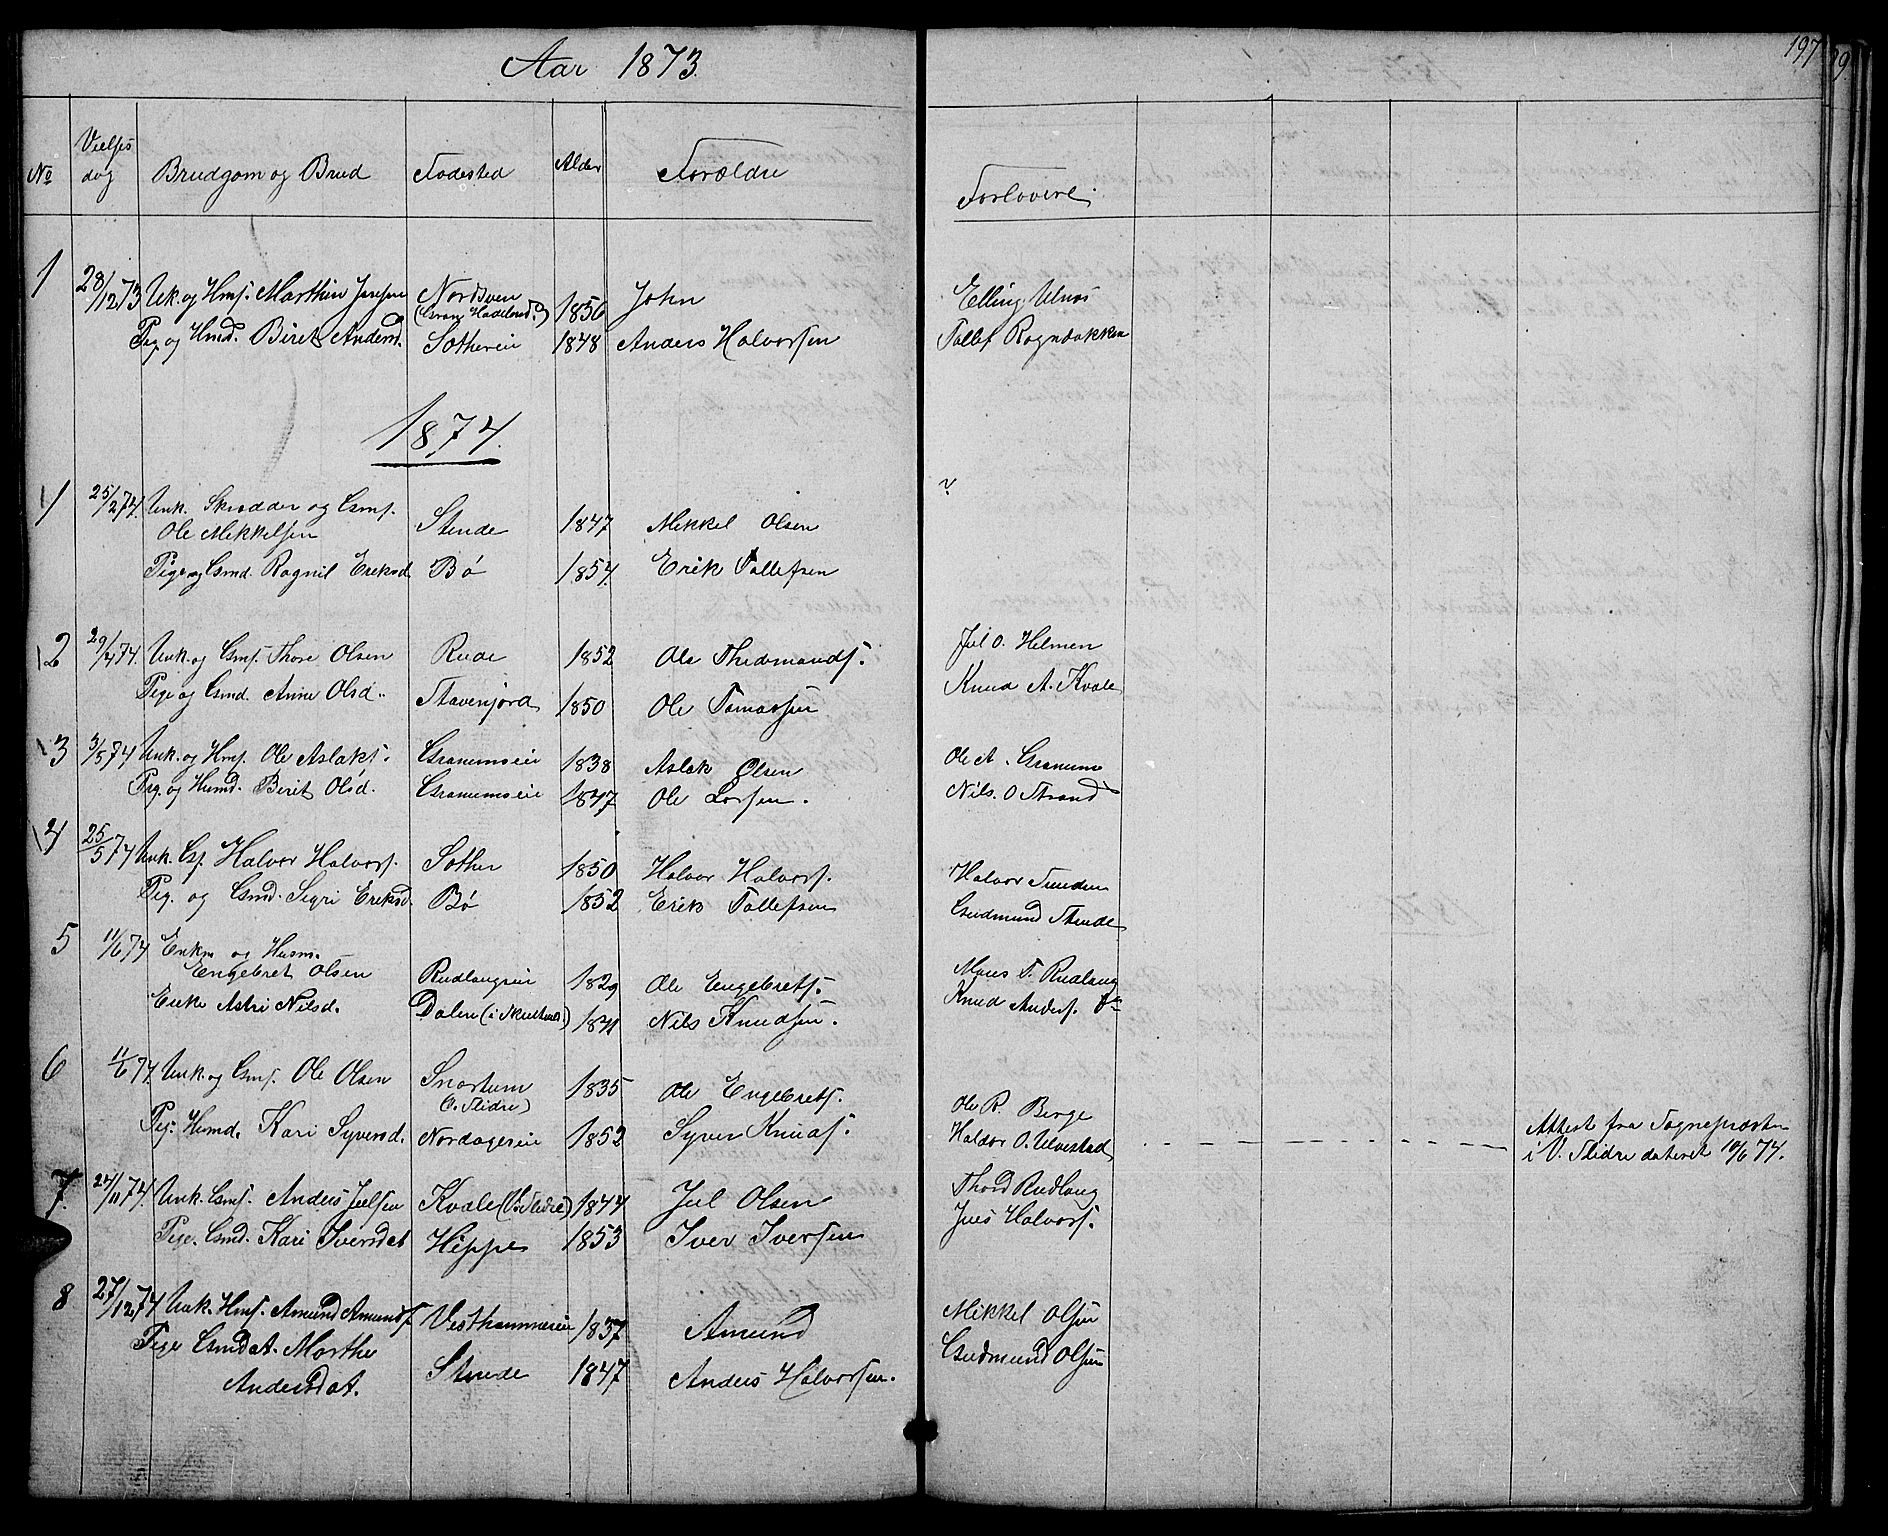 Aar 1873.
197
No Vielses dag Brudgom og Brud Fødested Alder Forældre Forlovere.
1 28/12 73 Uk. og Hmf. Marthin Jensen Nordsven 1856 John Elling Ulnæs
(Gran, Hadeland?)
Pig. og Hmd. Biret Andersd. Sotherei 1848 Anders Halvorsen Tollef Rogndokken
1874.
1 25/2 74. Unk. Skrædder og Gmf. ?
Ole Mikkelsen Stende 1847 Mikkel Olsen
Pige og Gmd. Ragnil Eriksd. Bø 1854. Erik Tollefsen
2 29/4 74. Unk. og Gmf. Thore Olsen Rude 1852 Ole Thidemandf. Jul O. Helmen
Pige og Gmd. Anne Olsd. Stavenjord 1850 Ole Tomassen Knud A. Kvale
3 3/5 74 Unk. og Hmf. Ole Aslaksf. Granumseie 1838 Aslak Olsen Ole A. Granum
Pig. og Husmd. Birit Olsd. Granumseie 1847 Ole Larsen. Nils. O Strand
4 25/5 74 Unk. Gf. Halvor Halvorsf. Sother 1850 Halvor Halvorsf. Halvor Sunden
Pig. og Gmd. Sigri Eriksd. Bø 1852 Erik Tollefsen Gudmund Stende
5 11/6 74 Enkm og Husm.
Engebret Olsen Rudlangeie 1829 Ole Engebretf. Mons T. Rudlang
Enke Astri Nilsd. Dalen (i Skutvol.) 1841 Nils Knudsen. Knud Andersf.
6 11/6 74. Unk. og Gmf. Ole Olsen Snortum 1835 Ole Engebretf.
(V. Slidre) Ole R. Berge
Pig. Husmd. Kari Syversd. Nordageeie 1852 Syver Knudf. Haldor O. Ulvestad Attest fra Sognepræsten
i V. Slidre dateret 10/6 74.
7. 24/11 74. Unk. Gmf. Anders Julsen Kvale (V. Slidre) 1844 Jul Olsen Thord Rudlang
Pige. Gmd. Kari Iversdat Hippe 1853 Iver Iversen Jens Halvorsf.
8 27/12 74 Unk. Hmf. Amund Amundsf Vesthammereie 1837 Amund Mikkel Olsen
Pige Gmdat. Marthe
Andersdat. Stende 1847 Anders Halvorsen. Gudmund Olsen